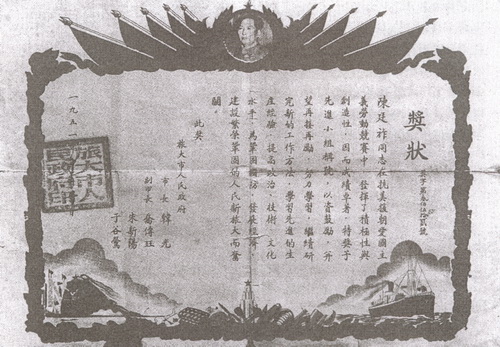 獎狀
陳廷祚同志在抗美援朝愛國主
義勞動競賽中,發揮了積極性與
創造性,因而成績卓著,特獎予
先進小組稱號,以資鼓勵,并
望再接再勵,努力學習,繼續研
究新的工作方法,學習先進的生
產經驗,提高政治、技術、文化
水平,為鞏固國防,發展經濟,
建設繁榮鞏固的人民新旅大而奮
鬭。
此獎
旅大市人民政府
市長 韓光
副市長 喬傳珏
宋新陽
于谷鶯
一九五一
旅大市人
民政府印